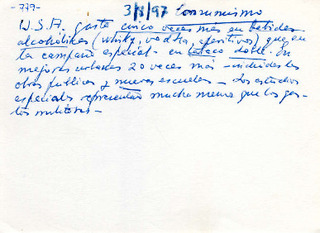 -779- 3/8/97 Consumismo
U.S.A. gasta cinco veces más en bebidas
alcohólicas (whisky, vodka, aperitivos) que en
la campaña espacial - en tabaco doble. En
mejoras urbanas 20 veces más - incluidas las
obras públicas y nuevas escuelas - Los estudios
especiales representan mucho menos que los gas-
tos militares -